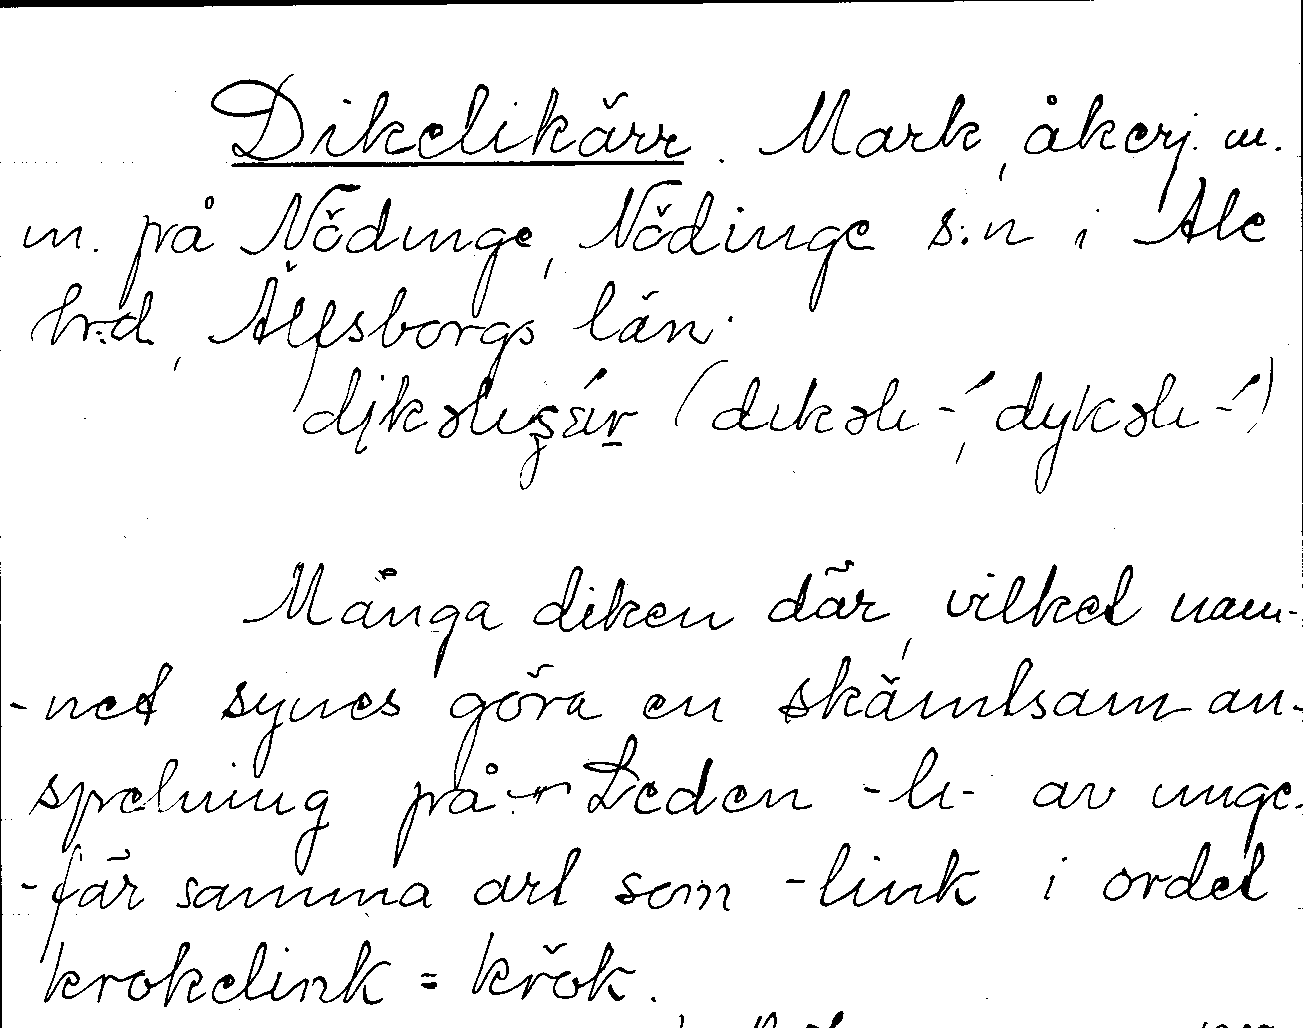 Dikelikärr. Mark, åkerj. m.
m. på Nödinge, Nödinge s:n i Ale
h:d, Älfsborgs län.
(
Många diken där, vilket nam-
-net synes göra en skämtsam an-
spelning på. Leden -li- av unge-
-fär samma art som -link i ordet
krokelink = krok.